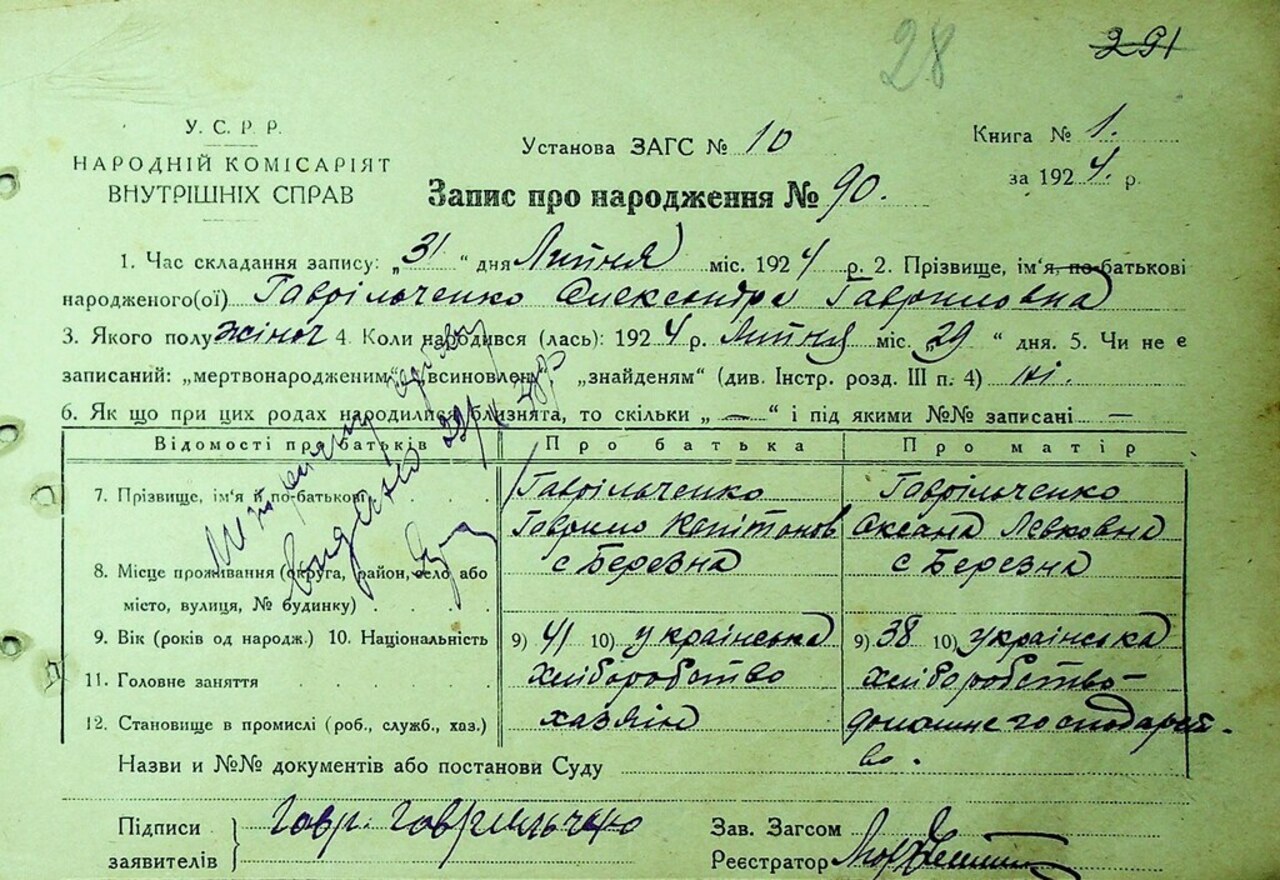 28
291
У. С. Р. Р.
НАРОДНІЙ КОМІСАРІЯТ
ВНУТРІШНІХ СПРАВ
Установа ЗАГС № 10
Книга № 1.
за 1924. р.
Запис про народження № 90.
1. Час складання запису: „31“ дня Липня міс. 1924 р. 2. Прізвище, ім'я, по-батькові
народженого(ої) Гаврільченко Олександра Гавриловна
3. Якого полу жіноч 4. Коли народився (лась): 1924 р. Липня міс. „29“ дня. 5. Чи не є
записаний: „мертвонародженим“ „всиновлен“ „знайденям“ (див. Інстр. розд. III п. 4) ні.
6. Як що при цих родах народились близнята, то скільки „—“ і під якими №№ записані —
Відомості про батьків Про батька Про матір
7. Прізвище, ім'я й по-батькові Гаврільченко Гаврільченко
Гаврило Капітонов Оксана Левковна
8. Місце проживання (округа, район, село або с Березна с Березна
місто, вулиця, № будинку)
9. Вік (років од народж.) 10. Національність 9) 41 10) українська 9) 38 10) українська
11. Головне заняття хліборобство хліборобство-
12. Становище в промислі (роб., служб., хаз.) хазяін домашнє господарст-
во.
Назви и №№ документів або постанови Суду
Підписи
заявителів
Гавр. Гаврильченко
Зав. Загсом
Реєстратор